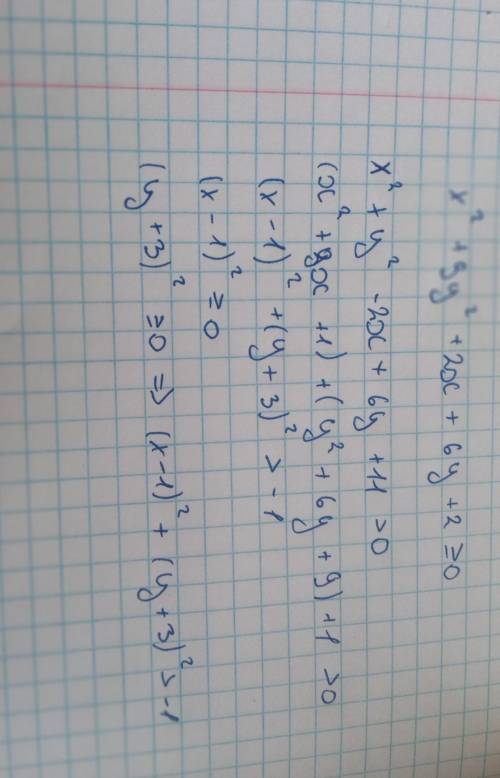 x² + 9y² + 2x + 6y + 2 ≥ 0
x² + y² - 2x + 6y + 11 > 0
(x² + 2x + 1) + (y² + 6y + 9) + 1 > 0
(x - 1)² + (y + 3)² > -1
(x - 1)² ≥ 0
(y + 3)² ≥ 0 => (x - 1)² + (y + 3)² > -1